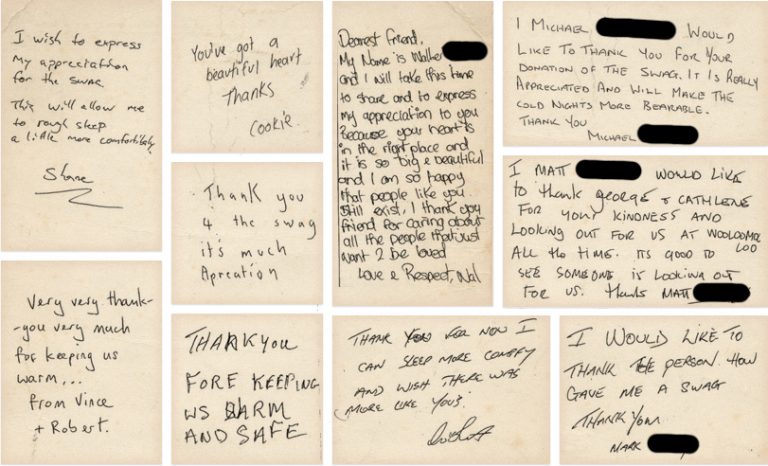 I wish to express
my appreciation
for the swag.
This will allow me
to rough sleep
a little more comfortably.
Shane
Very very thank-
-you very much
for keeping us
warm...
from Vince
+ Robert.
You've got a
beautiful heart
Thanks
Cookie.
Thank you
4 the swag
it's much
Apreation
THANKyou
FORE KEEPING
US WARM
AND SAFE
Dearest Friend,
My Name is Walter
and I will take this time
to share and to express
my appreciation to you
Because your heart is
in the right place and
it is so big & beautiful
and I am so happy
that people like you
still exist, I thank you
friend for caring about
all the people that just
want 2 be loved
Love & Respect, Wal
THANK YOU FOR NOW I
CAN SLEEP MORE COMFY
AND WISH THERE WAS
MORE LIKE YOUS.
I MICHAEL WOULD
LIKE TO THANK YOU FOR YOUR
DONATION OF THE SWAG. IT IS REALLY
APPRECIATED AND WILL MAKE THE
COLD NIGHTS MORE BEARABLE.
THANK YOU
MICHAEL
I MATT WOULD LIKE
to thank george & CATHLENE
FOR YOUR KINDNESS AND
LOOKING OUT FOR US AT WOOLOOMOO
LOO
ALL the time. ITS GOOD TO
SEE SOMEONE IS LOOKING OUT
FOR US. thanks MATT
I WOULD LIKE TO
THANK THE PERSON HOW
GAVE ME A SWAG
THANK YOU
MARK